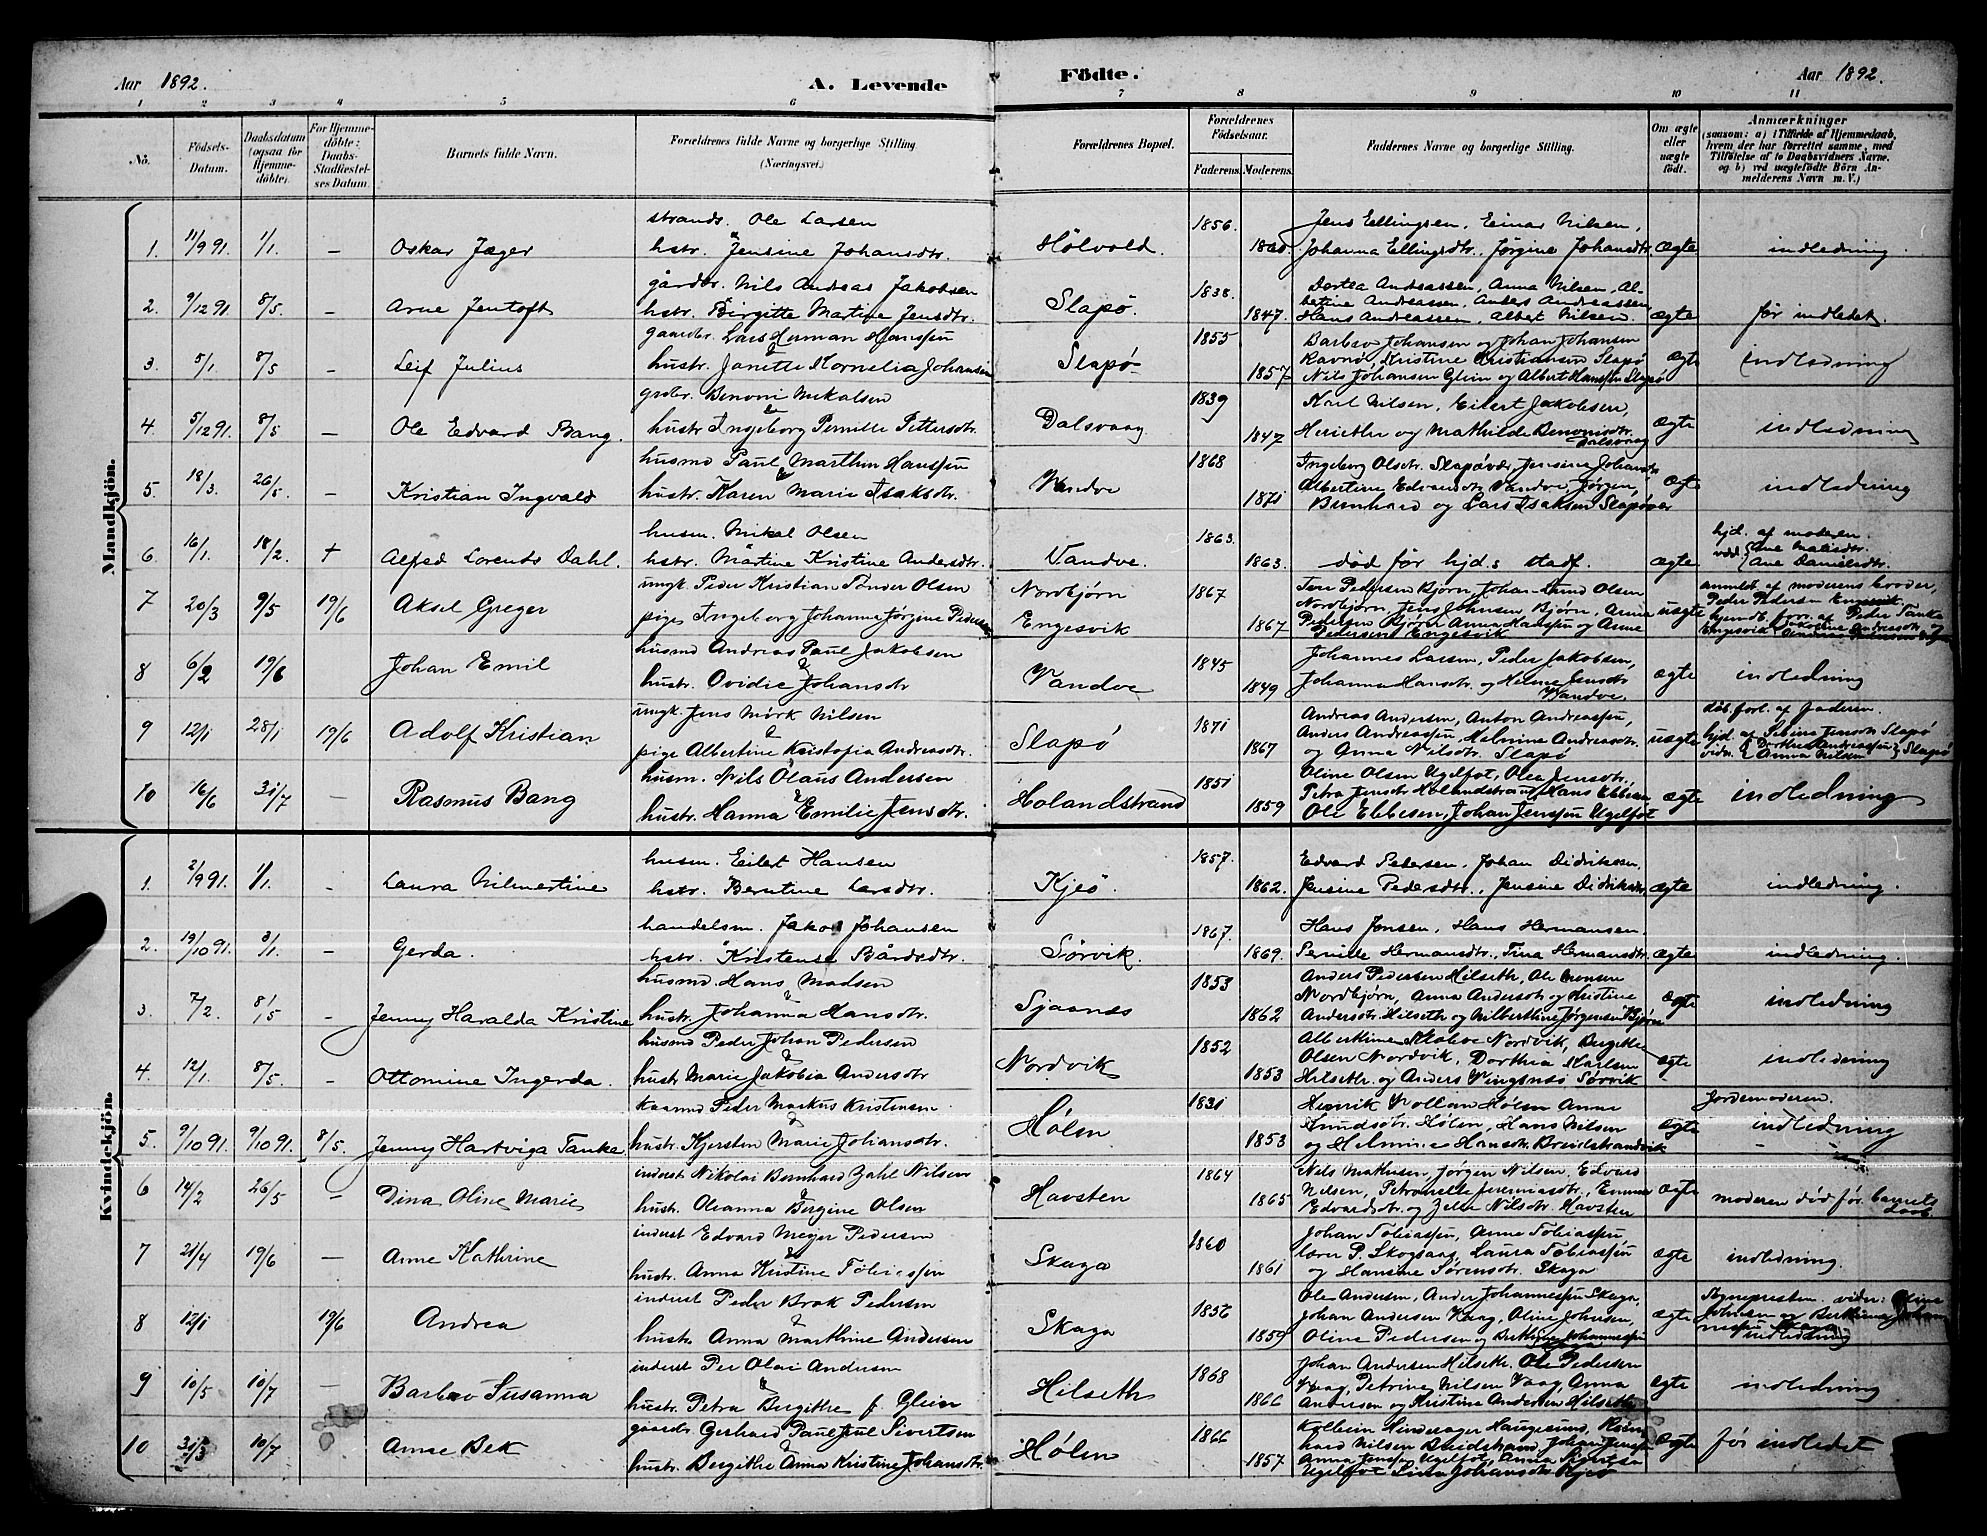 Aar 1892.
A. Levende
Födte.
Aar 1892.
1 2 3 4 5 6 7 8 9 10 11
No.
Födsels-
Datum.
Daabsdatum
(ogsaa for
Hjemme-
döbte).
For Hjemme-
döbte:
Daabs-
Stadfæstel-
ses Datum.
Barnets fulde Navn.
Forældrenes fulde Navne og borgerlige Stilling
(Næringsvei.)
Forældrenes Bopæl.
Forældrenes
Födselsaar.
Faderens. Moderens.
Faddernes Navne og borgerlige Stilling.
Om ægte
eller
uægte
födt.
Anmærkninger
(saasom: a) i Tilfælde af Hjemmedaab,
hvem der har forrettet samme, med
Tilföielse af to Daabsvidners Navne,
og b) ved uægtefödte Börn An-
melderens Navn m. V.)
Mandkjön.
strands. Ole Larsen 1856. Jens Ellingsen, Einar Nilsen,
1. 11/9 91. 1/1. — Oskar Jæger hstr. Jensine Johansdtr. Hölvold. 1860. Johanna Ellingsdtr., Jørgine Johansdtr ægte indledning.
gårdbr. Nils Andreas Jakobsen 1838. Dortea Andreassen, Anna Nilsen, Al-
bertine Andreassen, Anders Andreassen
2. 9/12 91 8/5. — Arne Jentoft hstr. Birgitte Martine Jensdtr. Slapø. 1847. Hans Andreassen, Albert Nilsen. ægte før indledet.
gaardbr. Lars Herman Hanssen 1855 Barbro Johansen og Johan Johansen
3. 5/1. 8/5 — Leif Julius hustr. Janette Kornelia Johansen Slapø Ravnø, Kristine Kristiansen Slapø ægte indledning
1857 Nils Johansen Glein og Albert Hanssen Slapø
grdbr. Benoni Mikalsen 1839 Karl Nilsen, Eilert Jakobsen,
4. 5/12 91. 8/5. — Ole Edvard Bang. hustr Ingeborg Pernille Pettersdtr. Dalsvaag 1847 og Mathilde Benonisdtr. ægte indledning
Dalsvaag
husmd Paul Marthin Hanssen 1868 Ingeborg Olsdtr. Slapøvær, Jensine Johansdtr
5. 18/3. 26/5. — Kristian Ingvald hustr. Karen Marie Isaksdtr. Vandve 1871 Albertine Edvardsdtr Vandve, Jørgen, ægte indledning
Bernhard og Lars Isaksen Slapøvær
husm. Mikal Olsen 1863. hjd. af moderen.
6 16/1. 18/2. + Alfred Lorents Dahl. hstr. Martine Kristine Andersdtr. Vandve. 1863. død før hjd.s stadf. ægte
Ane Danielsdtr.
ungk. Peder Kristian Olsen Nordbjörn 1867 Pedersen Bjørn, Johan Olsen anmeldt af moderens broder,
7 20/3 9/5 19/6 Aksel Greger pige Ingeborg Johanna Jørgine Pedersen Engesvik 1867 Nordbjørn, Jens Johnsen Bjørn, Anna uægte Peder Pedersen Engesvik.
Pedersen Bjørn, Anna Hanssen og Anne
Pedersen Engesvik
husmd Andreas Paul Jakobsen 1845 Johannes Larsen, Peder Jakobsen,
8 6/2 19/6 Johan Emil hustr. Ovidie Johansdtr Vandve 1849 Johanna Hansdtr. og Jensdtr ægte indledning
Vandve.
ungk. Jens Mörk Nilsen 1871 Andreas Andersen, Anton Andreassen, dåb forl. af faderen.
9 12/1 28/1 19/6 Adolf Kristian pige Albertine Kristofia Andreasdtr. Slapø 1867 Anders Andreassen, Helmine Andreasdtr. uægte
og Anna Nilsdtr. Slapø
husm. Nils Olaus Andersen 1851 Oline Olsen Ugelfot, Olea Jensdtr.,
10 16/6 31/7 — Rasmus Bang hustr. Hanna Emilie Jensdtr. Holandstrand 1859 Petra Jensdtr Holandstrand, Hans Ebbesen, ægte indledning
Ole Ebbesen, Johan Jenssen Ugelfot
Kvindekjön.
husm. Eilert Hansen 1857. Edvard Pedersen, Johan Didriksen,
1. 2/9 91. 1/1. - Laura Nilmertine hstr. Berntine Larsdtr. Kjeö. 1862. Jensine Pedersdtr., Jensine Didriksdtr ægte indledning.
handelsm. Jakob Johansen 1867. Hans Jensen, Hans Hermansen.
2. 19/10 91. 3/1. - Gerda. hstr. Kristense Bårdsdtr. Sørvik. 1869. Pernille Hermansdtr., Tina Hermansdtr. ægte indledning.
husmd Hans Madsen 1853 Anders Pedersen Hilseth, Ole Monsen
3. 7/2. 8/5 - Jenny Haralda Kristine hustr. Johanna Hansdtr. Sjaanes 1862 Nordbjörn, Anna Andersdtr og Kristine ægte indledning
Andersdtr. Hilseth og Nilberthine Jørgensen Bjørn
husmd Peder Johan Pedersen 1852 Alberthine Nordvik, Bergithe
4. 12/1. 8/5. - Ottomine Ingerda. hustr Marie Jakobia Andersdtr Nordvik 1853 Olsen Nordvik, Dorthea Karlsen ægte indledning
Hilseth. og Anders Vingsnes Sørvik
Peder Markus Kristensen 1831 Henrik Hølen Anne Jordemoderen.
5. 9/10 91. 9/10 91. 8/5. Jenny Hartviga Tanke hustr. Kjersten Marie Johansdtr. Hølen 1853 Knudsdtr. Hølen, Hans Nilsen ægte indledning
og Helmine Hansdtr. Breidstrandvik
inderst Nikolai Bernhard Zahl Nilsen 1864 Nils Mathisen, Jørgen Nilsen, Edvard
6 14/2 26/5 — Dina Oline Marie hustr. Oleanna Bergine Olsen Havsten 1865 Nilsen, Petronelle Jeremiasdtr, Emma ægte moderen död før barnets
Edvardsdtr. og Nilsdtr. Havsten daab.
inderst Edvard Meyer Pedersen 1860 Johan Tobiassen, Anne Tobiassen,
7 21/4 19/6 — Anne Kathrine hustr. Anna Kristine Tobiassen Skaga 1861 lærer P. Skogsaas, Laura Tobiassen ægte indledning.
og Hansine Sørensdtr. Skaga
inderst Peder Brok Pedersen 1856 Ole Andersen, Ander Johannessen Skaga,
8 12/1 19/6 Andrea hustr. Anna Marthine Andersen Skaga 1859 Johan Andersen Vaag, Oline Johnsen, ægte
Oline Pedersen og Berthine Johannessen indledning
Skaga
inderst Per Olai Andersen 1868 Johan Andersen Hilseth, Ole Pedersen
9 10/5 10/7 — Barbro Susanna hustr. Petra Bergithe f. Glein Hilseth 1866 Vaag, Petrine Nilsen Vaag, Anna ægte indledning
Andersen og Kristine Andersen Hilseth
gaardb Gerhard Paul Juul Sivertsen 1866
10 31/3 10/7 Anna Bek hustr. Bergithe Anna Kristine Johansdtr. Hølen 1857 Nilsen Breidstrand, Johan Jenssen ægte før indledet
Anna Jenssen Ugelfot, Anna Sivertsen
Ugelfot Lina Johansdtr. Kjeø